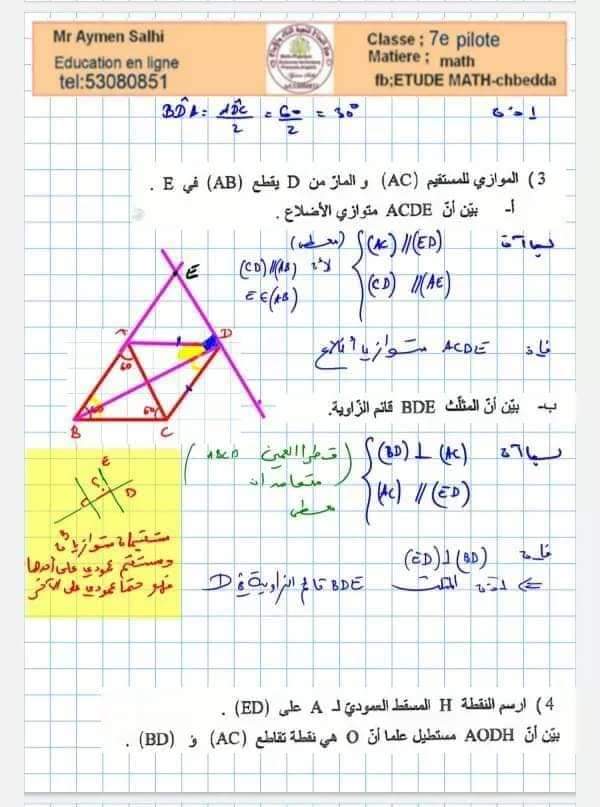 Mr Aymen Salhi
Education en ligne
tel:53080851
Classe ; 7e pilote
Matiere ; math
fb;ETUDE MATH-chbedda
BD̂A = AD̂C/2 = 60/2 = 30°
إذن
3) الموازي للمستقيم (AC) و المارّ من D يقطع (AB) في E .
أ- بيّن أنّ ACDE متوازي الأضلاع .
بما أنّ
(AC) // (ED) (معطى)
(CD) // (AE)
لأنّ (CD) // (AB)
E ∈ (AB)
فإن ACDE متوازي أضلاع
E
A
D
60
60
B
C
ب- بيّن أنّ المثلّث BDE قائم الزّاوية.
بما أنّ
(BD) ⊥ (AC)
(AC) // (ED)
قطرا المعين ABCD
متعامدان
معطى
فإن (BD) ⊥ (ED)
إذن المثلث BDE قائم الزاوية في D
E
D
مستقيمان متوازيان
ومستقيم عمودي على أحدهما
فهو حتما عمودي على الآخر
4) ارسم النقطة H المسقط العموديّ لـ A على (ED) .
بيّن أنّ AODH مستطيل علما أنّ O هي نقطة تقاطع (AC) و (BD) .